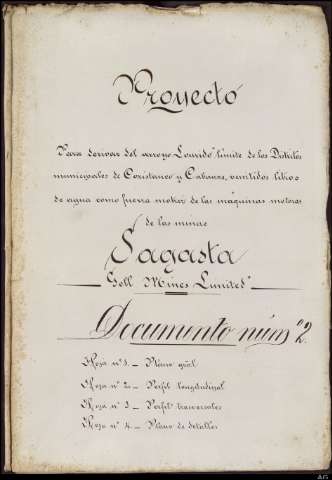 Proyecto
Para derivar del arroyo Lourido límite de los Distritos
municipales de Coristanco y Cabana, veintidos litros
de agua como fuerza motriz de las máquinas motoras
de las minas
Sagasta
Goll Mines Limited
Documento núm° 2
Hoja n° 1. - Plano gral
Hoja n° 2. - Perfil longitudinal
Hoja n° 3 - Perfil transversales
Hoja n° 4. - Plano de detalles
AG